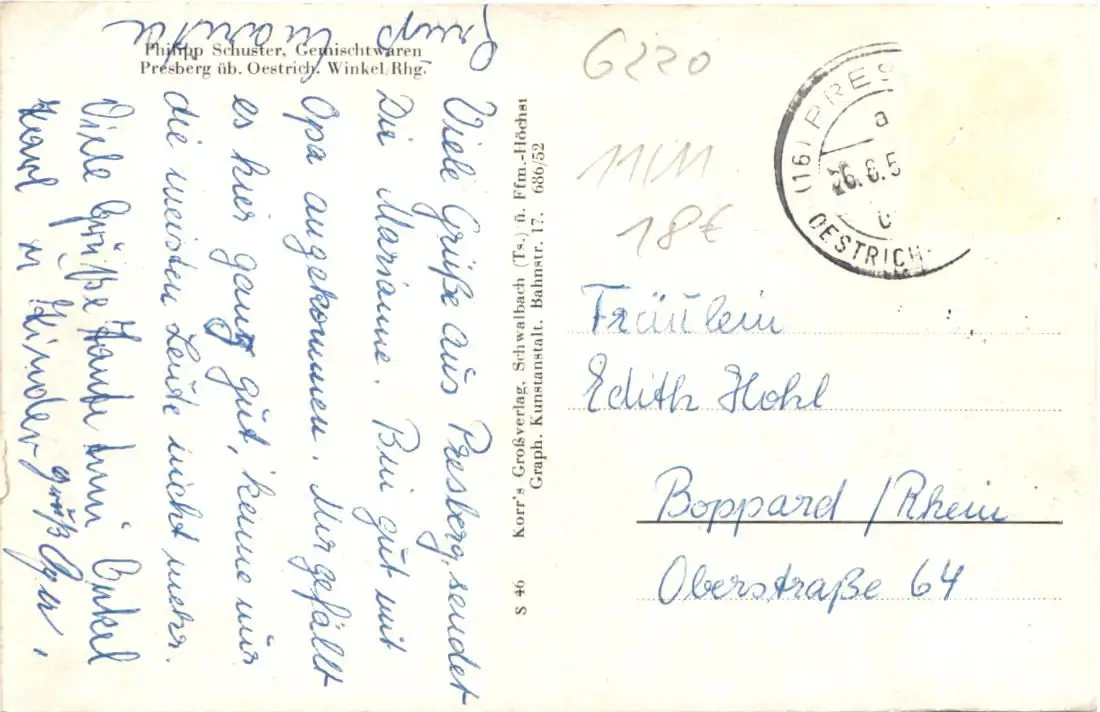 Philipp Schuster, Gemischtwaren
Presberg üb. Oestrich. Winkel/Rhg.
Viele Grüße aus Presberg, sendet
Die Marianne. Bin gut mit
Opa angekommen. Mir gefällt
es hier ganz gut, kenne nur
die meisten Leute nicht mehr.
Viele Grüße Onkel
Karl u Kinder
grüß
Gruß
S 46 Korr's Großverlag, Schwalbach (Ts.) ü. Ffm.-Höchst
Graph. Kunstanstalt. Bahnstr. 17. 686/52
6220
11/11
18€
(16) PRES
a
26.6.5
OESTRICH
Fräulein
Edith Hohl
Boppard /Rhein
Oberstraße 64